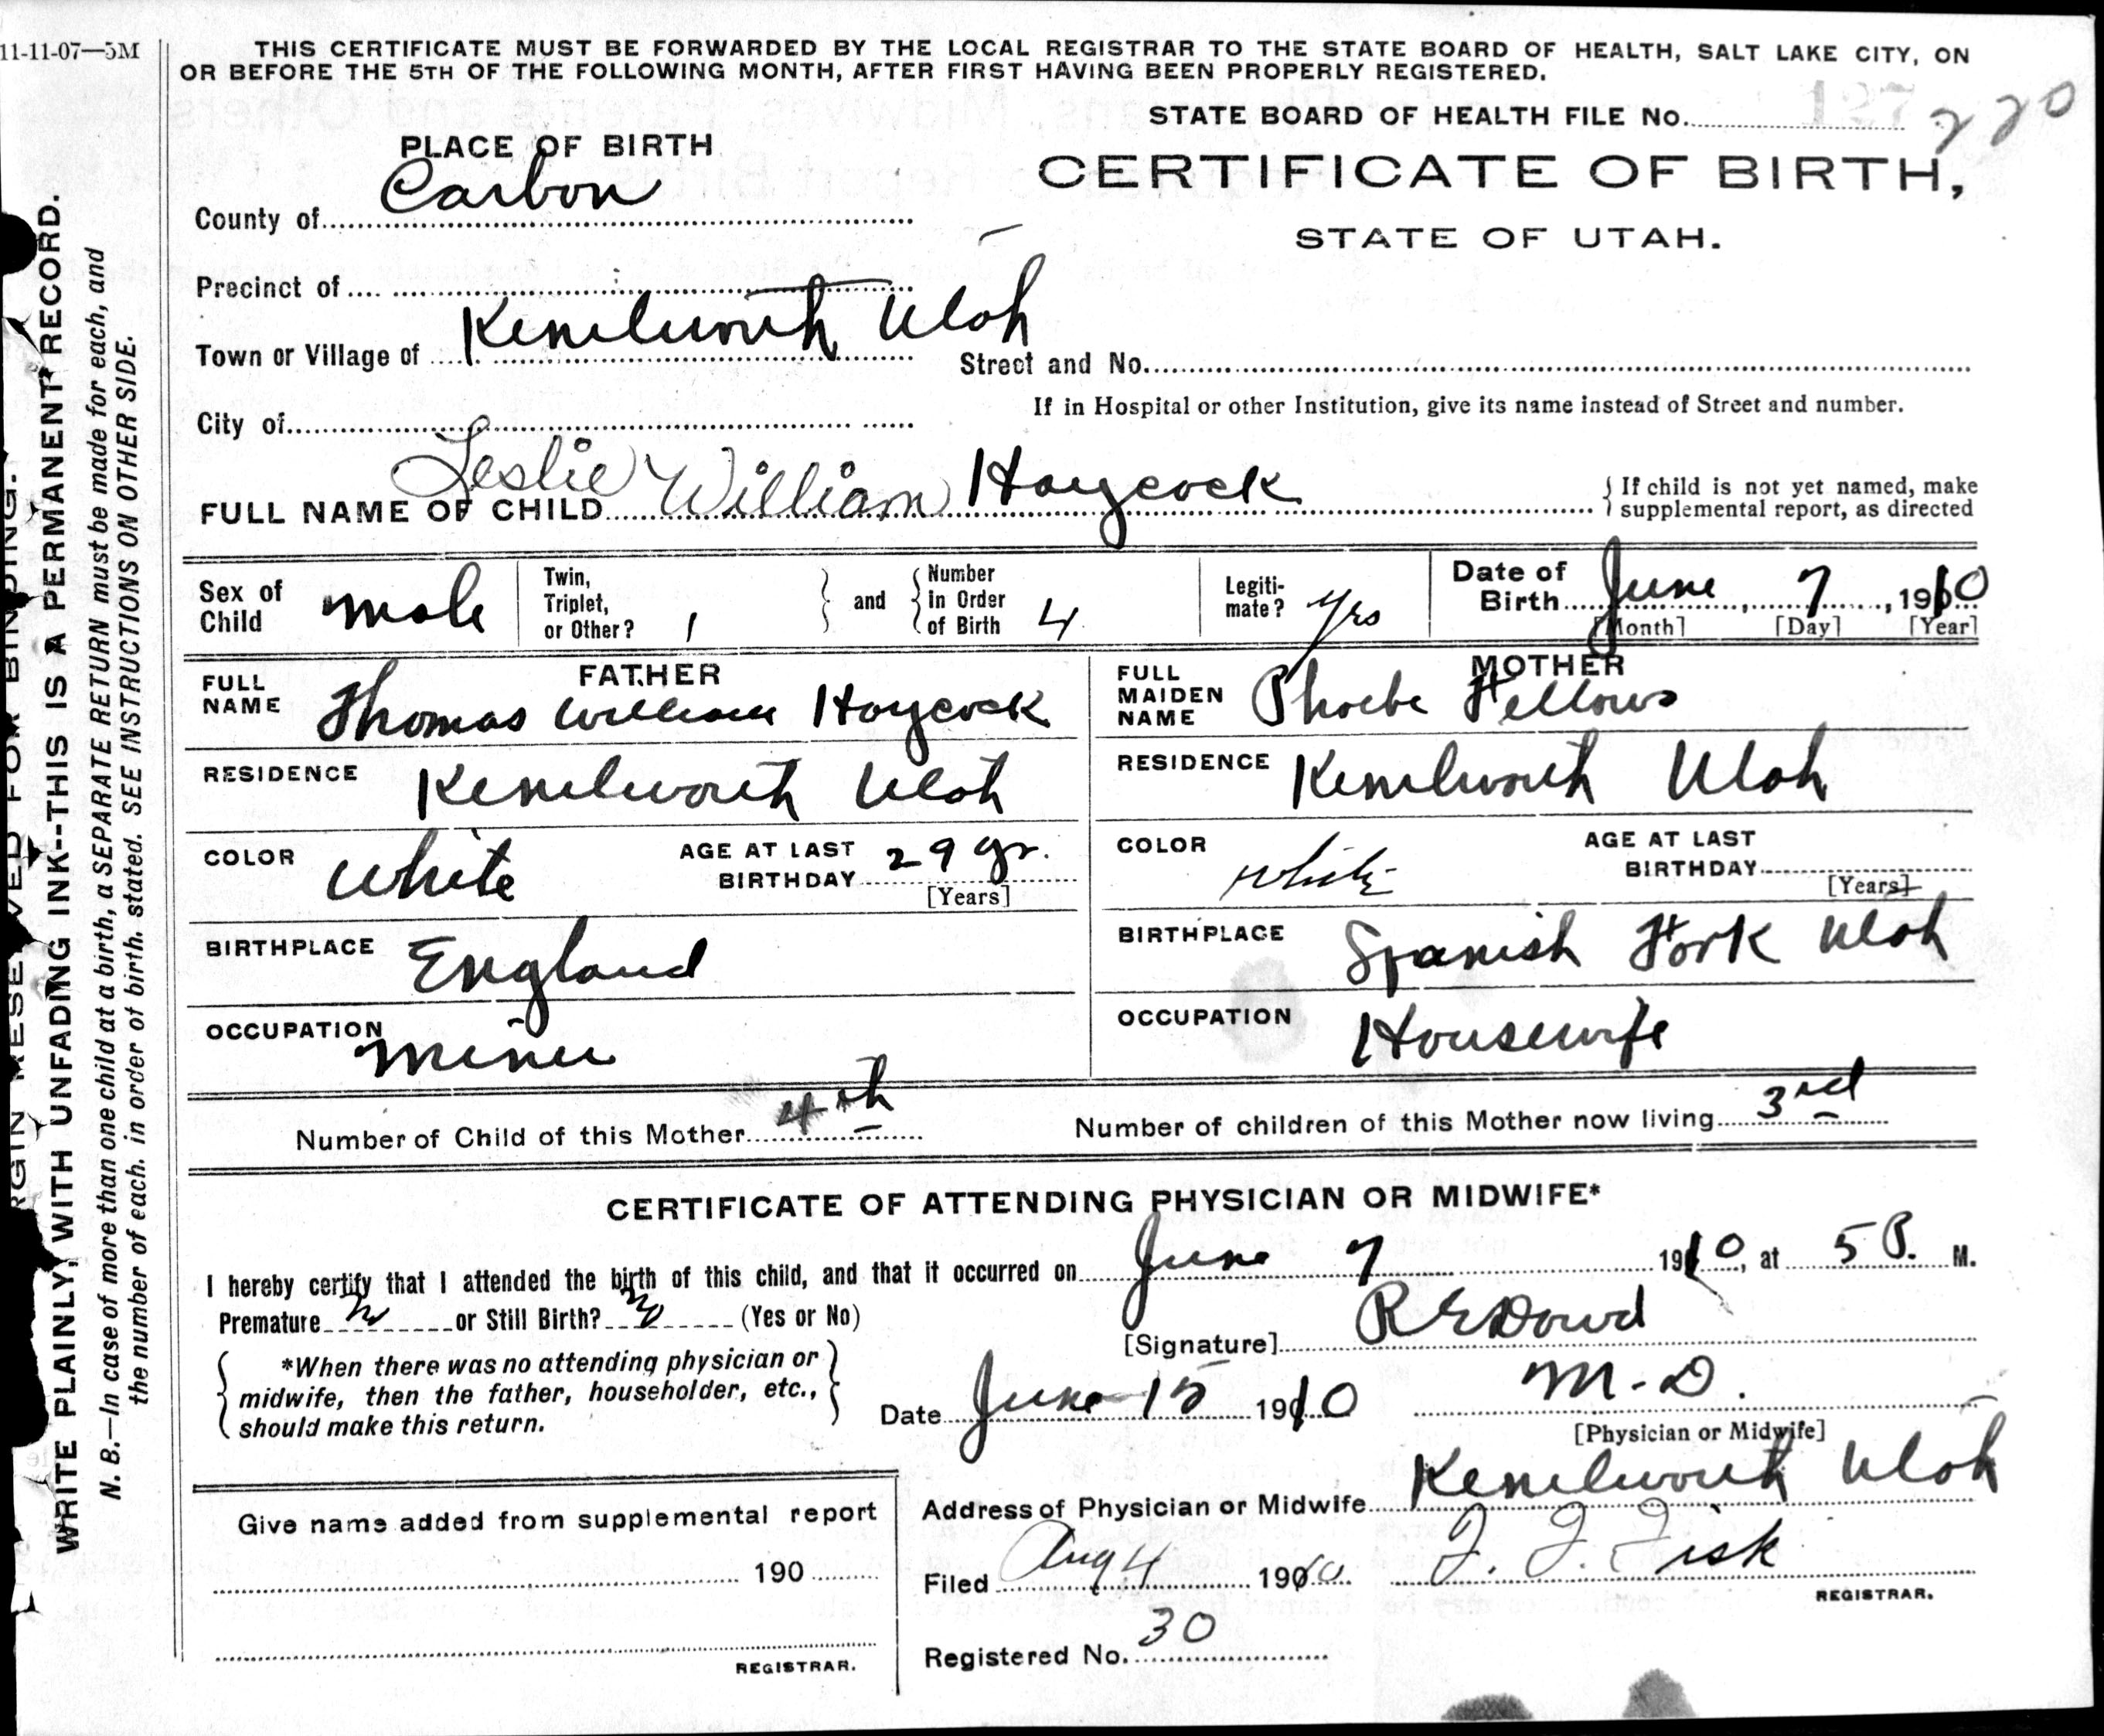 11-11-07—5M
THIS CERTIFICATE MUST BE FORWARDED BY THE LOCAL REGISTRAR TO THE STATE BOARD OF HEALTH, SALT LAKE CITY, ON
OR BEFORE THE 5TH OF THE FOLLOWING MONTH, AFTER FIRST HAVING BEEN PROPERLY REGISTERED.
STATE BOARD OF HEALTH FILE No. 127 220
PLACE OF BIRTH
CERTIFICATE OF BIRTH,
STATE OF UTAH.
County of Carbon
Precinct of
Town or Village of Kenilworth Utah
Street and No.
If in Hospital or other Institution, give its name instead of Street and number.
City of
FULL NAME OF CHILD Leslie William Haycock
{ If child is not yet named, make
supplemental report, as directed
Sex of Child male
Twin, Triplet, or Other? 1
and
Number in Order of Birth 4
Legitimate? yes
Date of Birth June 7, 1910
[Month] [Day] [Year]
FATHER
FULL NAME Thomas William Haycock
RESIDENCE Kenilworth Utah
COLOR White
AGE AT LAST BIRTHDAY 29 yr.
[Years]
BIRTHPLACE England
OCCUPATION Miner
MOTHER
FULL MAIDEN NAME Phoebe Fellows
RESIDENCE Kenilworth Utah
COLOR White
AGE AT LAST BIRTHDAY
[Years]
BIRTHPLACE Spanish Fork Utah
OCCUPATION Housewife
Number of Child of this Mother 4th
Number of children of this Mother now living 3rd
CERTIFICATE OF ATTENDING PHYSICIAN OR MIDWIFE*
I hereby certify that I attended the birth of this child, and that it occurred on June 7 1910, at 5 P. M.
Premature no or Still Birth? no (Yes or No)
[Signature] R E Dowd
*When there was no attending physician or
midwife, then the father, householder, etc.,
should make this return.
Date June 15 1910
M.D.
[Physician or Midwife]
Address of Physician or Midwife Kenilworth Utah
Give name added from supplemental report
190
REGISTRAR.
Filed Aug 4 1910
F. F. Fisk
REGISTRAR.
Registered No. 30
MARGIN RESERVED FOR BINDING.
WRITE PLAINLY, WITH UNFADING INK--THIS IS A PERMANENT RECORD.
N. B.—In case of more than one child at a birth, a SEPARATE RETURN must be made for each, and
the number of each, in order of birth, stated. SEE INSTRUCTIONS ON OTHER SIDE.